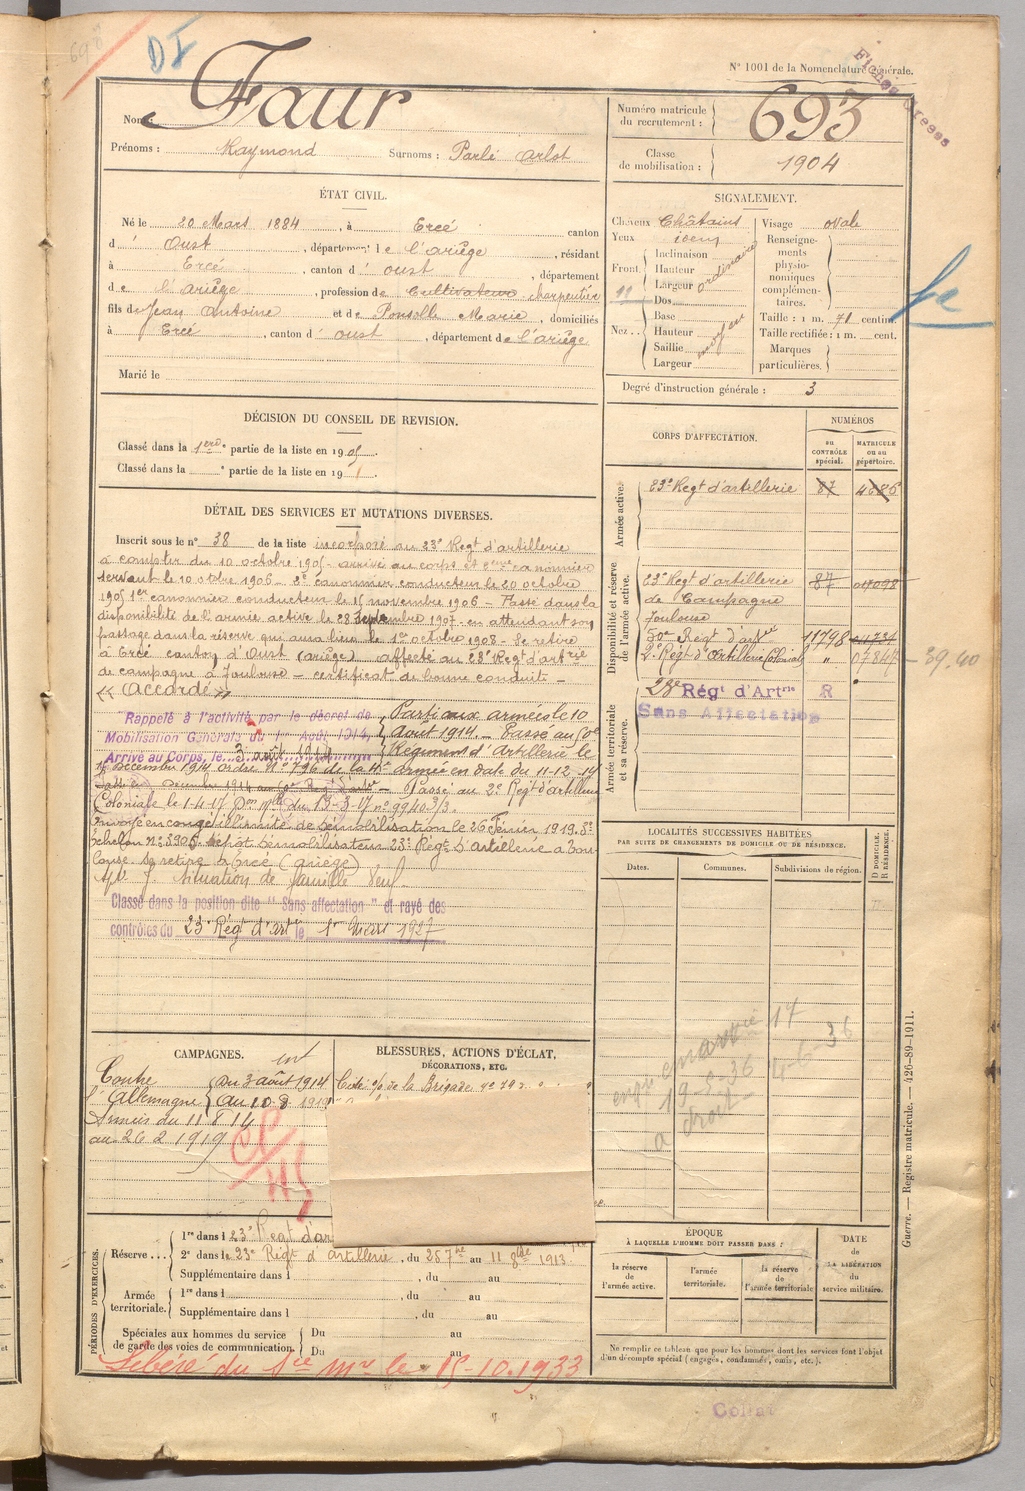 698
DI
N° 1001 de la Nomenclature générale.
Nom: Faur
Prénoms : Raymond Surnoms : Parlé Arlot
Numéro matricule du recrutement : 693
Classe de mobilisation : 1904
ÉTAT CIVIL.
Né le 20 Mars 1884, à Ercé canton
d' Oust, département de l'Ariège, résidant
à Ercé, canton d' Oust, département
de l'Ariège, profession de Cultivateur charpentier
fils de Jean Antoine et de Ponsolle Marie, domiciliés
à Ercé, canton d' Oust, département de l'Ariège
Marié le
SIGNALEMENT.
Cheveux Châtains
Yeux idem
Front
Inclinaison
Hauteur
Largeur
ordinaire
Nez
Dos
Base
Hauteur
Saillie
Largeur
moyen
Visage ovale
Renseignements physionomiques complémentaires.
Taille : 1 m. 71 centim.
Taille rectifiée : 1 m. cent.
Marques particulières.
Degré d'instruction générale : 3
DÉCISION DU CONSEIL DE REVISION.
Classé dans la 1ère partie de la liste en 1905.
Classé dans la partie de la liste en 19
DÉTAIL DES SERVICES ET MUTATIONS DIVERSES.
Inscrit sous le n° 38 de la liste incorporé au 23e Regt d'artillerie
à compter du 10 octobre 1905 arrivé au corps et 2eme canonnier
servant le 10 octobre 1906 – 2e canonnier conducteur le 20 octobre
1905 1er canonnier conducteur le 15 novembre 1906 – Passé dans la
disponibilité de l'armée active le 28 Septembre 1907 en attendant son
passage dans la réserve qui aura lieu le 1er octobre 1908 – Se retire
à Ercé canton d'Oust (Ariège) affecté au 23e Regt d'artrie
de campagne à Toulouse – certificat de bonne conduite –
« Accordé »
Rappelé à l'activité par le décret de
Mobilisation Générale du 1er Août 1914,
Arrivé au Corps, le 3 août 1914
Parti aux armées le 10
Août 1914. – Passé au
Régiment d'Artillerie le
Décembre 1914 ordre N° 796 de la armée en date du 11-12-14
Passé au 2e Regt d'artillerie
Coloniale le 1-4-17 Don Mlle du 13-3-17 n° 9940 3/3.
Envoyé en congé illimité de Démobilisation le 26 Février 1919. 3e
échelon n° 3905 dépôt Démobilisateur 23e Régt d'Artillerie à Tou-
louse se retire à Ercé (Ariège)
Situation de famille Veuf
Classé dans la position dite "Sans affectation" et rayé des
contrôles du 23e Régt d'artie le 1er Mars 1927
CORPS D'AFFECTATION.
NUMÉROS
au CONTRÔLE spécial.
MATRICULE ou au répertoire.
Armée active.
23e Regt d'artillerie 87
Disponibilité et réserve de l'armée active.
23e Regt d'artillerie 87
de Campagne
Toulouse
50e Régt d'artrie 11798
2e Régt d'Artillerie Coloniale "
39.40
Armée territoriale et sa réserve.
23e Régt d'Artrie R
Sans Affectation
LOCALITÉS SUCCESSIVES HABITÉES
PAR SUITE DE CHANGEMENTS DE DOMICILE OU DE RÉSIDENCE.
Dates. Communes. Subdivisions de région. D DOMICILE. R RÉSIDENCE.
19-5-36 4-6-36
droit
CAMPAGNES.
int
Contre l'Allemagne
du 3 août 1914
au 10 8 1914
Armées du 11 8 14
au 26 2 1919
BLESSURES, ACTIONS D'ÉCLAT,
DÉCORATIONS, ETC.
Cité o/ de la Brigade n° 79
PÉRIODES D'EXERCICES.
Réserve ...
1re dans l 23e Regt d'ar
2e dans le 23e Régt d'artillerie, du 25 7bre au 11 8bre 1913.
Supplémentaire dans l , du au
Armée territoriale.
1re dans l , du au
Supplémentaire dans l , du au
Spéciales aux hommes du service de garde des voies de communication.
Du au
Du au
Libéré du Sce Mre le 15-10-1933
ÉPOQUE
À LAQUELLE L'HOMME DOIT PASSER DANS :
la réserve de l'armée active.
l'armée territoriale.
la réserve de l'armée territoriale
DATE de LA LIBÉRATION du service militaire.
Ne remplir ce tableau que pour les hommes dont les services font l'objet
d'un décompte spécial (engagés, condamnés, omis, etc.).
Guerre. — Registre matricule. — 426-89-1911.